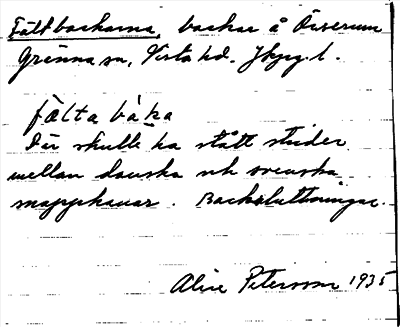 Fältbackarna, backar å Örserum
Gränna sn, Vista hd. Jkpg. l.
fä̀lta bàka
Där skulle ha stått strider
mellan danska och svenska
snapphanar. Backsluttningar.
Alice Petersson 1935